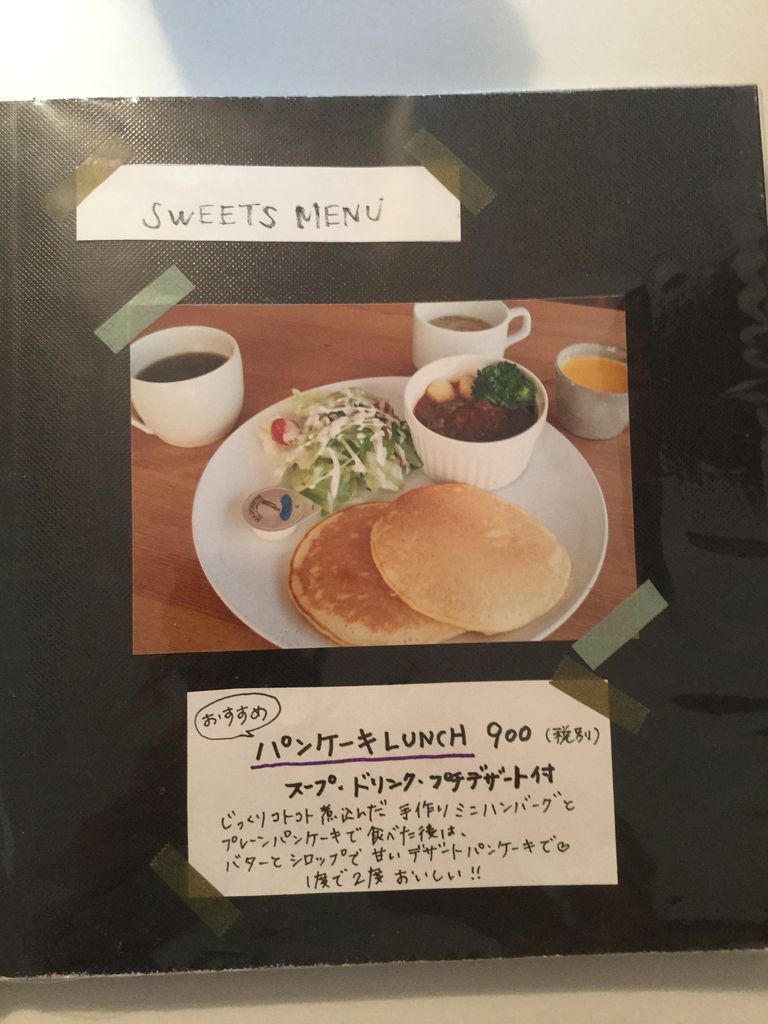 SWEETS MENU
おすすめ
パンケーキLUNCH 900 (税別)
スープ・ドリンク・プチデザート付
じっくりコトコト煮込んだ 手作りミニハンバーグと
プレーンパンケーキで食べた後は、
バターとシロップで甘いデザートパンケーキで♡
1度で2度おいしい!!